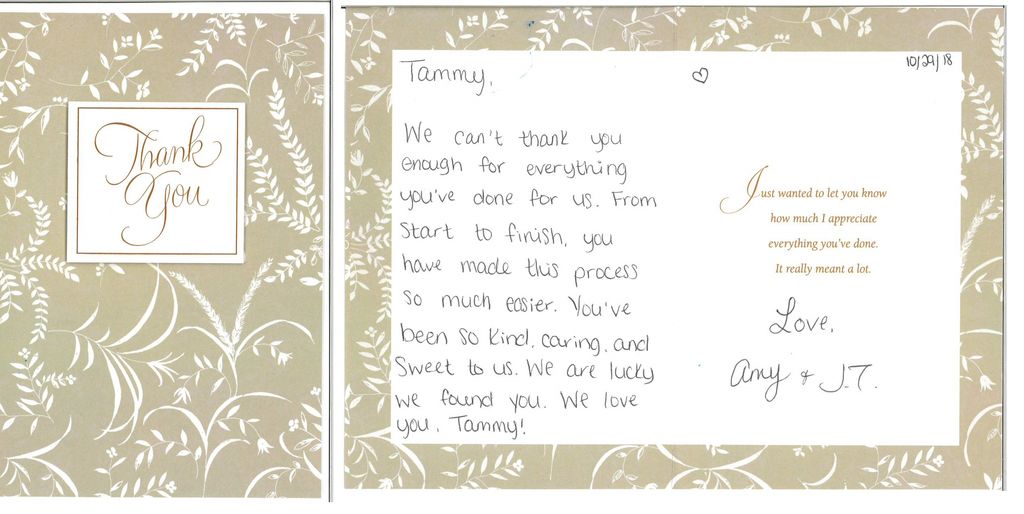 Thank
You
10/29/18
Tammy,
We can't thank you
enough for everything
you've done for us. From
start to finish, you
have made this process
so much easier. You've
been so kind, caring, and
sweet to us. We are lucky
we found you. We love
you, Tammy!
Just wanted to let you know
how much I appreciate
everything you've done.
It really meant a lot.
Love,
Amy + J.T.